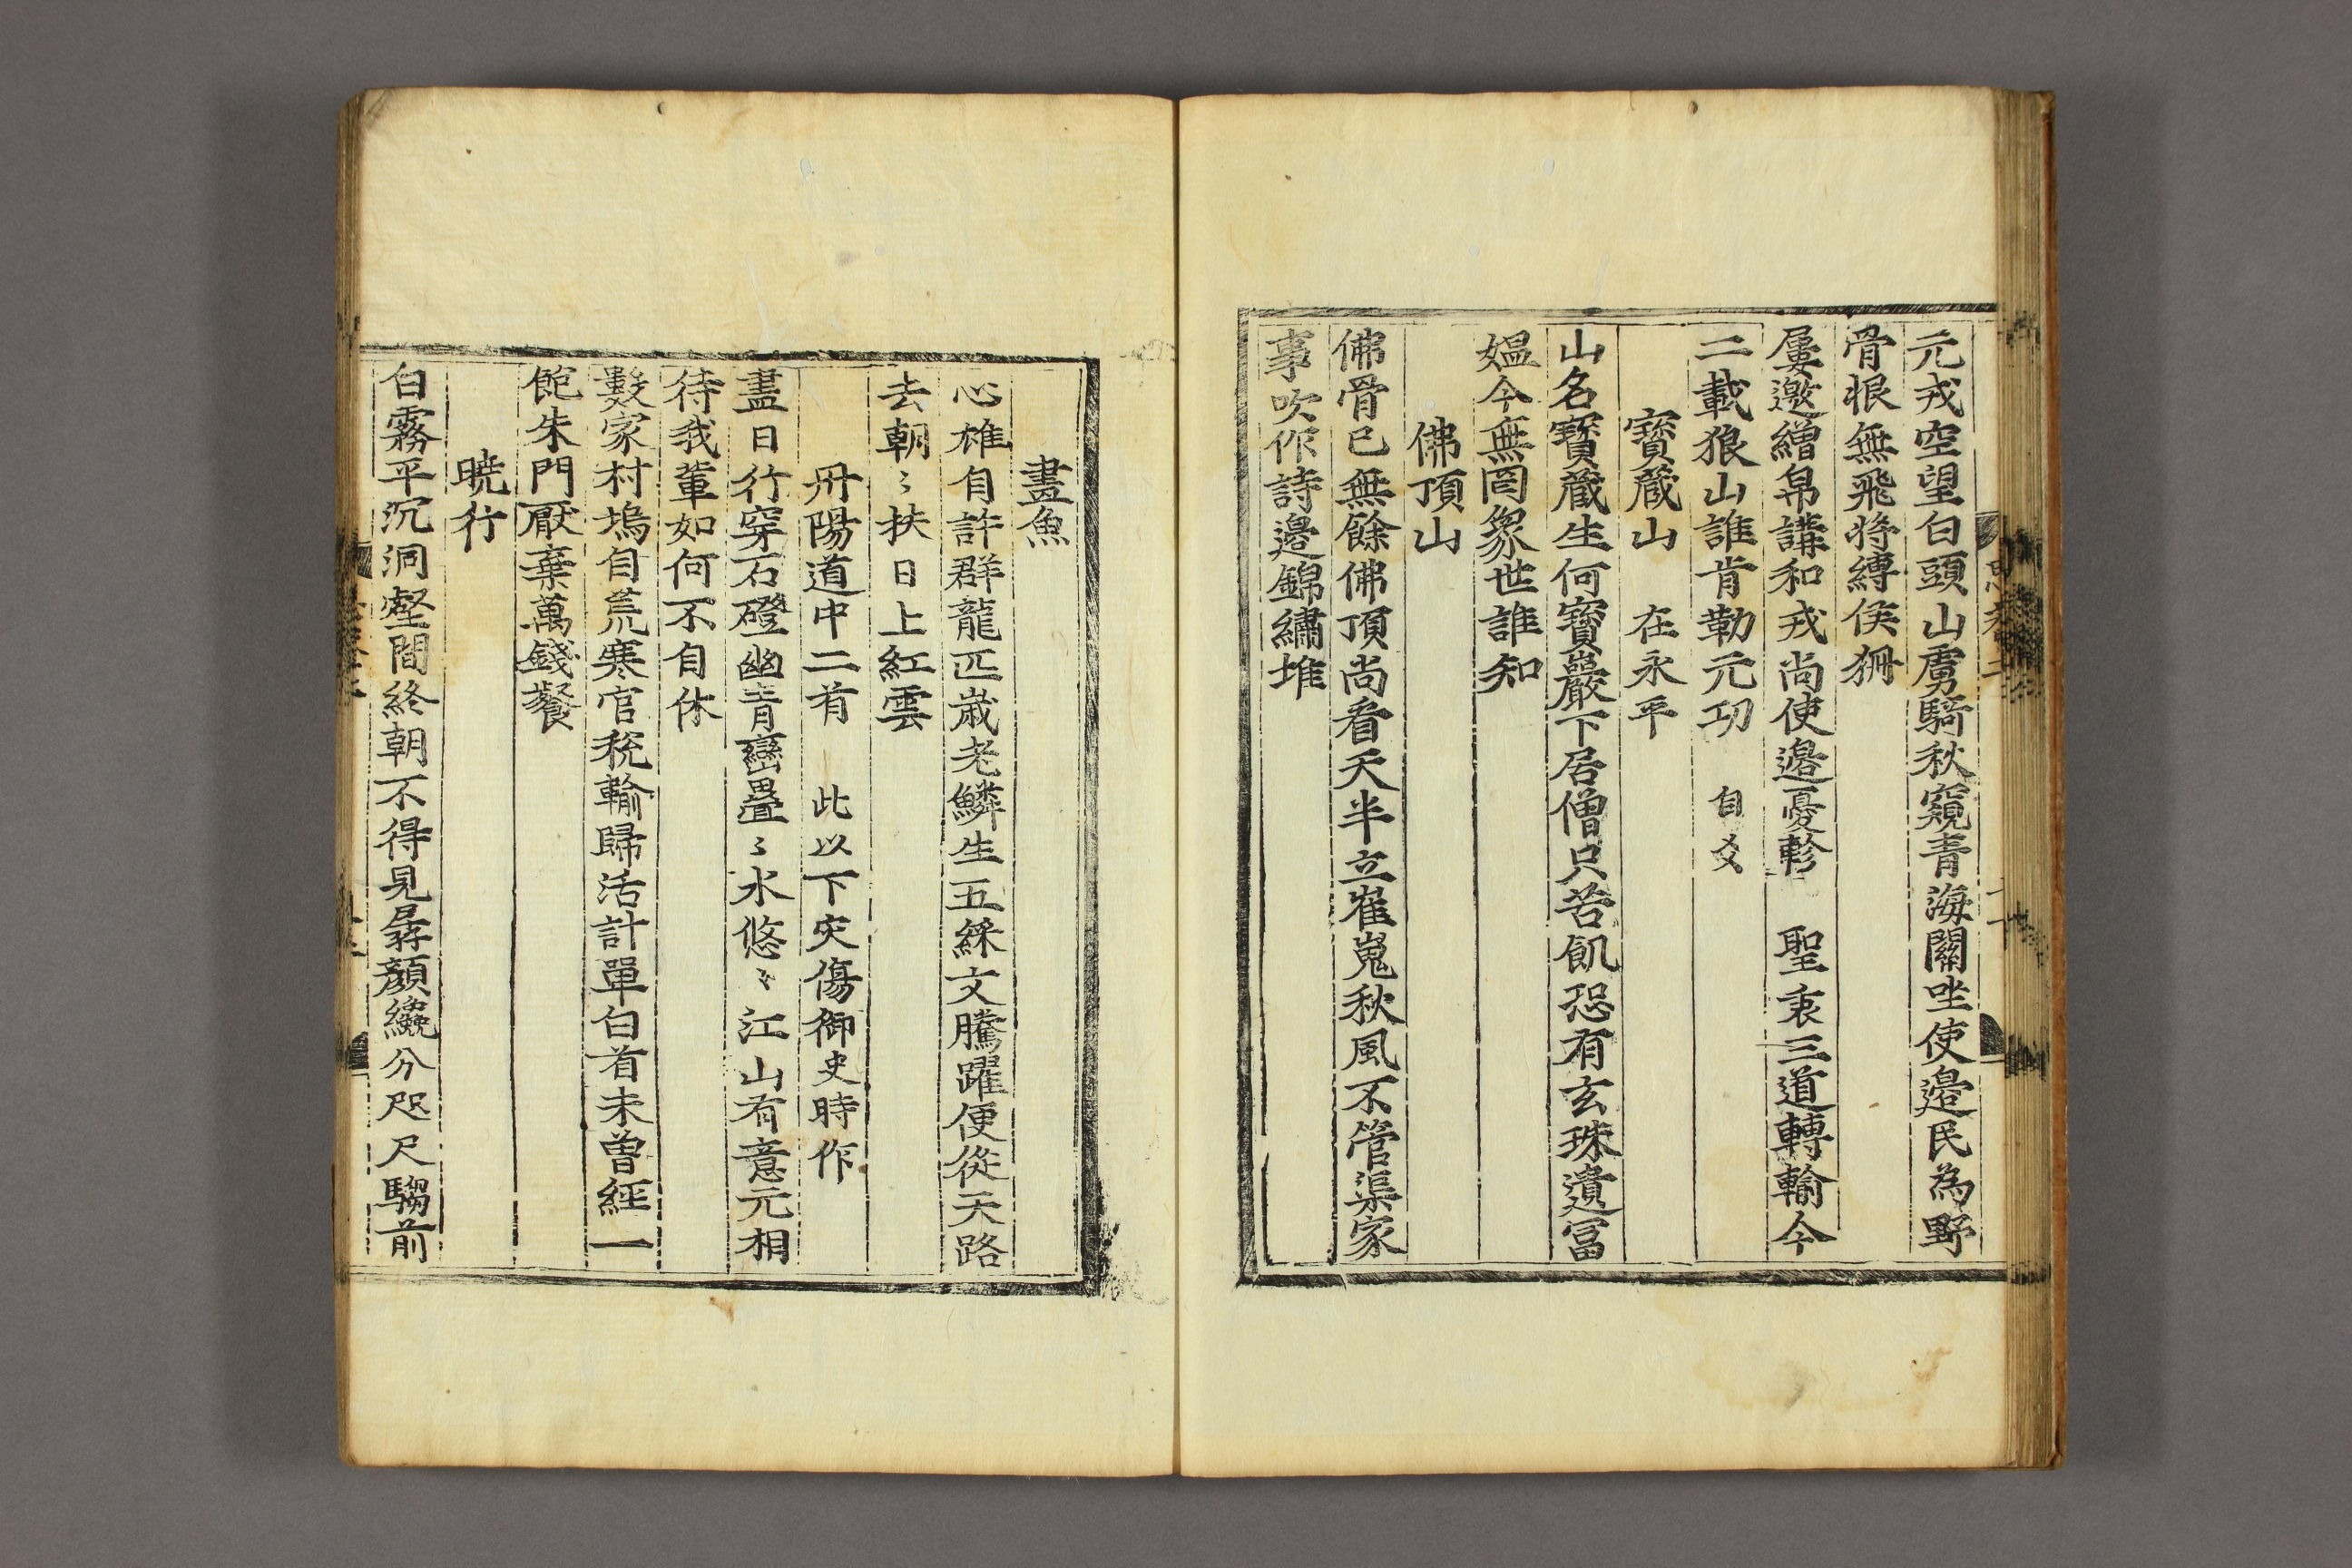 元戎空望白頭山虜騎秋窺青海關坐使邉民為野
骨恨無飛将縛侯狦
屢邀繒帛講和戎尚使邉憂軫 聖衷三道轉輸今
二載狼山誰肯勒元功 自爻
寳蔵山 在永平
山名寳蔵生何寳巖下居僧只苦飢恐有玄珠遺冨
媪今無罔象世誰知
佛頂山
佛骨已無餘佛頂尚看天半立崔嵬秋風不管渠家
事吹作詩邉錦繡堆
畫魚
心雄自許群龍匹歳老鱗生五綵文騰躍便從天路
去朝〻扶日上紅雲
丹陽道中二首 此以下灾傷御史時作
盡日行穿石磴幽青巒疊〻水悠〻江山有意元相
待我輩如何不自休
數家村塢自荒寒官税輸歸活計單白首未曽經一
飽朱門厭棄萬錢餐
暁行
白霧平沉洞壑間終朝不得見孱顔纔分咫尺騶前